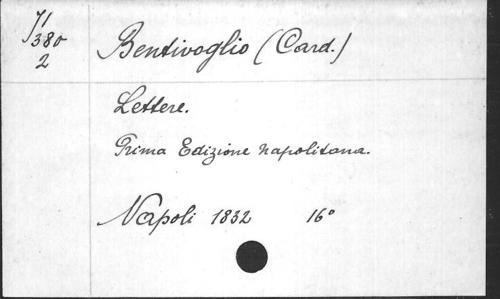 71
380
2
Bentivoglio (Card.)
Lettere.
Prima Edizione napolitana.
Napoli 1832 16°